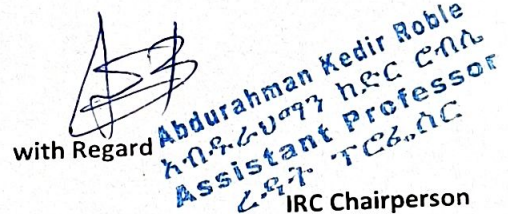 with Regard
Abdurahman Kedir Roble
አብዱራህማን ከድር ሮብሌ
Assistant Professor
ረዳት ፕሮፌሰር
IRC Chairperson